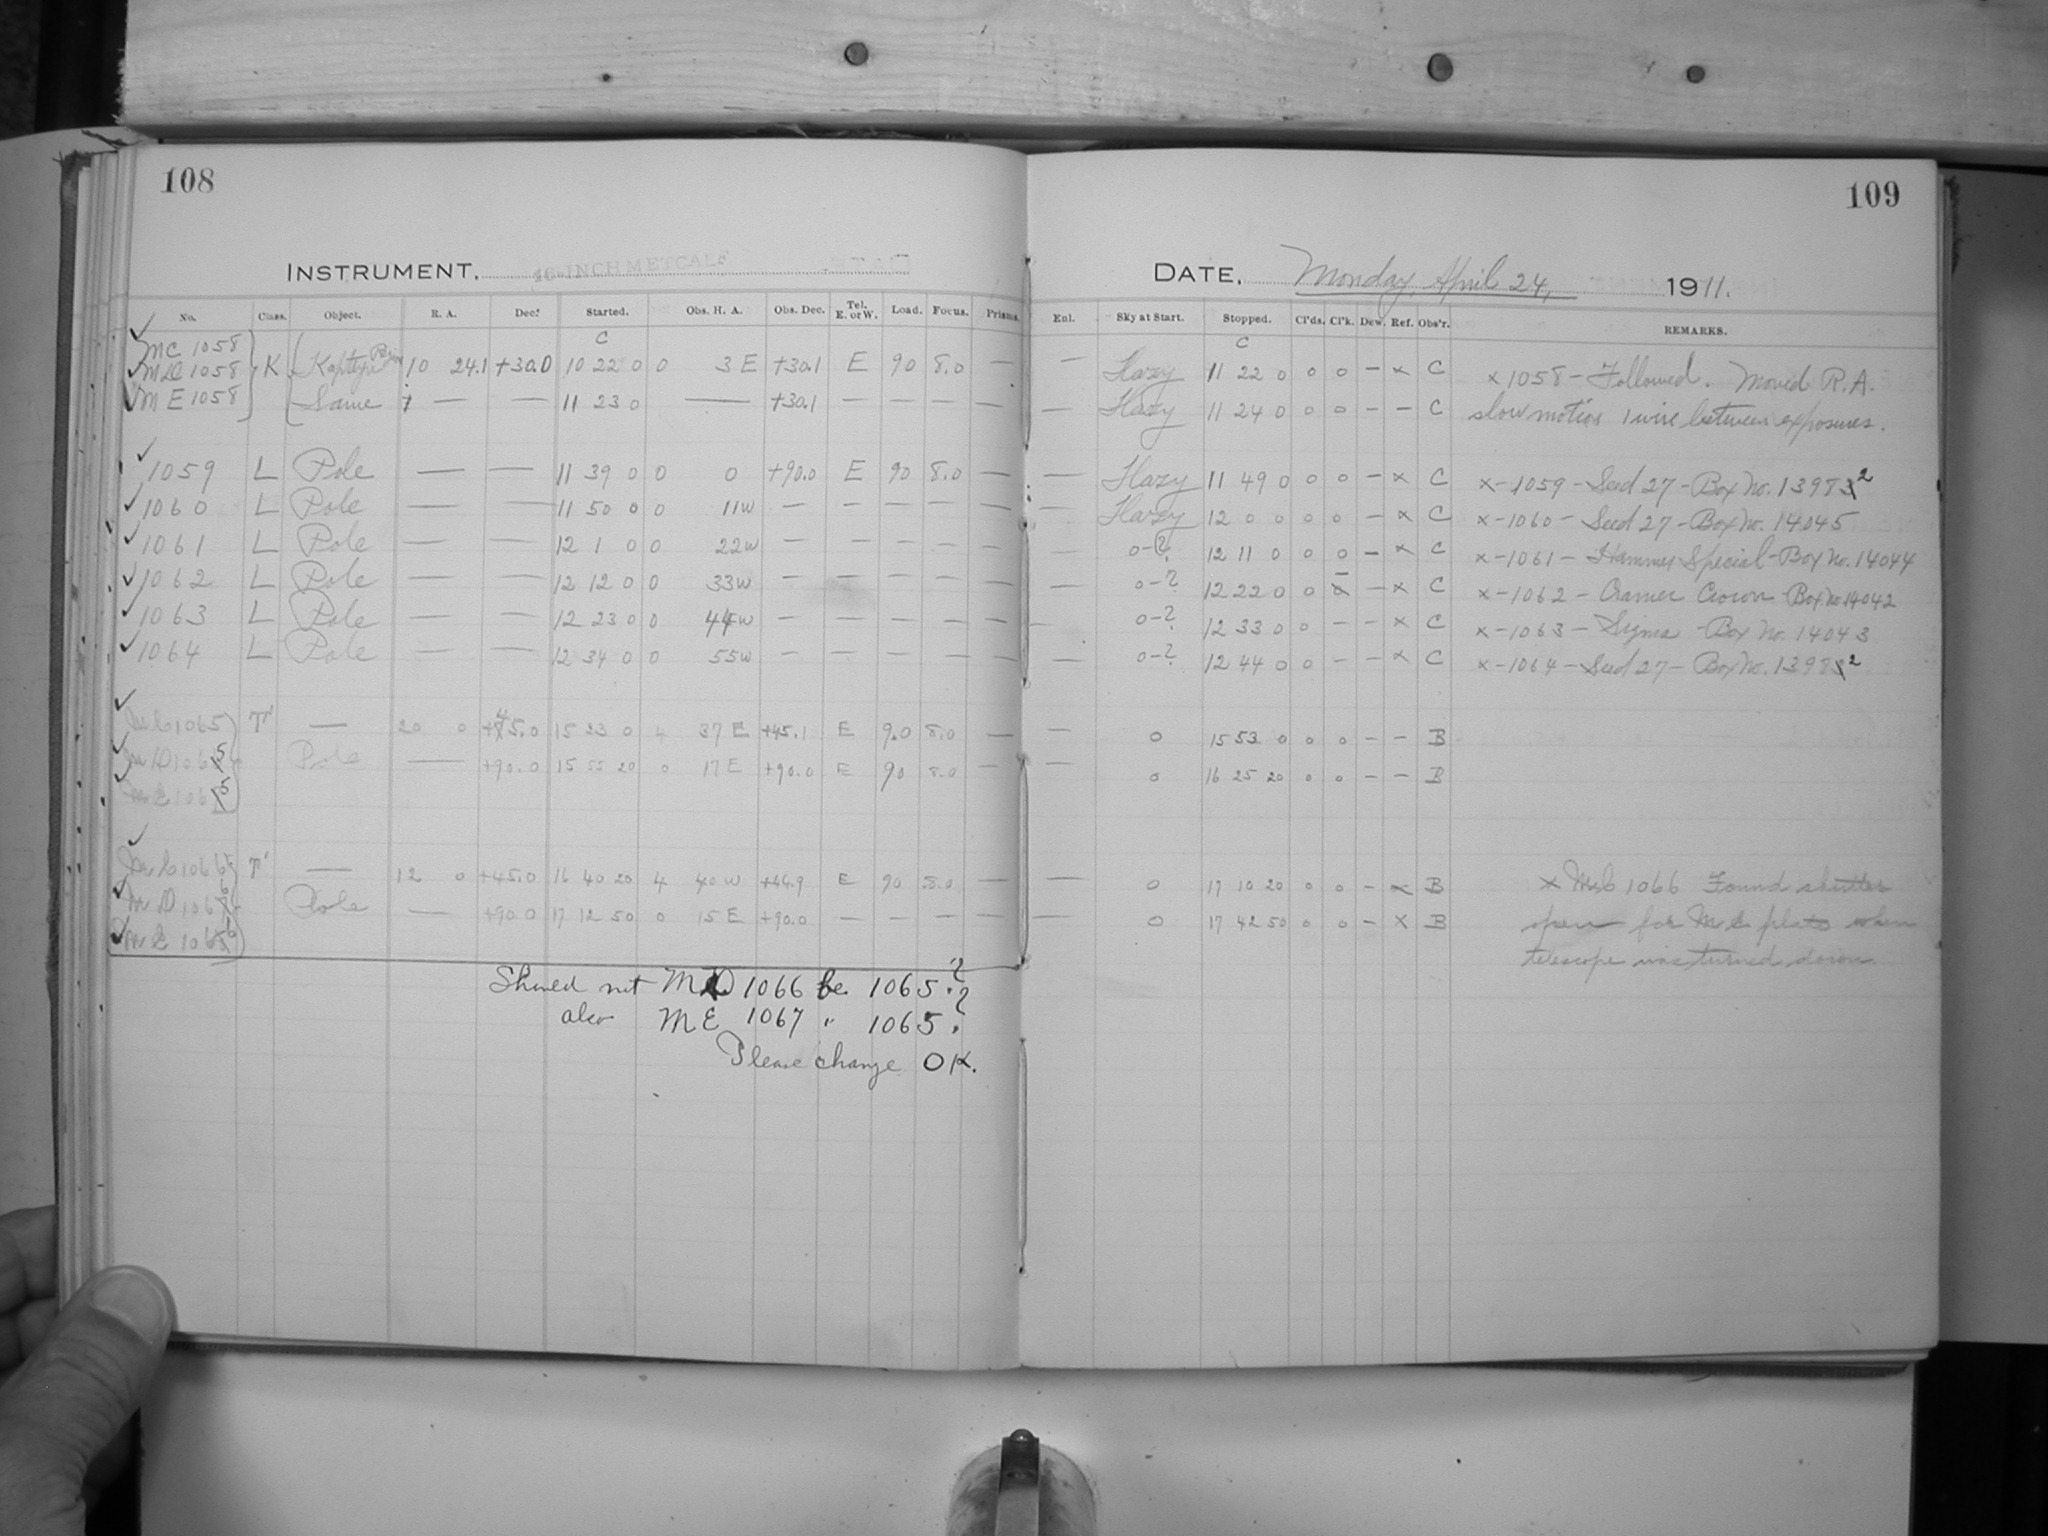 108
INSTRUMENT, 16-INCH METCALF
No. Class. Object. R. A. Dec. Started. Obs. H. A. Obs. Dec. Tel. E. or W. Load. Focus. Prisms.
C
MC 1058
MD 1058 K Kapteyn Region 10 24.1 +30.0 10 22 0 0 3 E +30.1 E 90 8.0 —
ME 1058 Same — — 11 23 0 — +30.1 — — — —
1059 L Pole — — 11 39 0 0 0 +90.0 E 90 8.0 —
1060 L Pole — — 11 50 0 0 11w — — — — —
1061 L Pole — — 12 1 0 0 22w — — — — —
1062 L Pole — — 12 12 0 0 33w — — — — —
1063 L Pole — — 12 23 0 0 44w — — — — —
1064 L Pole — — 12 34 0 0 55w — — — — —
MC 1065 T' — 20 0 +45.0 15 23 0 4 37 E +45.1 E 9.0 8.0 —
MD 1065 Pole — +90.0 15 55 20 0 17 E +90.0 E 90 8.0 —
ME 1065
MC 1066 T' — 12 0 +45.0 16 40 20 4 40 W +44.9 E 90 8.0 —
MD 1066 Pole — +90.0 17 12 50 0 15 E +90.0 — — — —
ME 1066
Should not MD 1066 be 1065?
also ME 1067 " 1065?
Please change OK.
109
DATE, Monday, April 24, 1911.
Enl. Sky at Start. Stopped. Cl'ds. Cl'k. Dew. Ref. Obs'r. REMARKS.
C
— Hazy 11 22 0 0 0 — x C x 1058 — Followed. Moved R.A.
— Hazy 11 24 0 0 0 — — C slow motion 1 wire between exposures.
— Hazy 11 49 0 0 0 — x C x-1059 — Seed 27 — Box No. 13982
— Hazy 12 0 0 0 0 — x C x-1060 — Seed 27 — Box No. 14045
— 0-? 12 11 0 0 0 — x C x-1061 — Hammer Special — Box No. 14044
— 0-? 12 22 0 0 — — x C x-1062 — Cramer Crown Box No 14042
— 0-? 12 33 0 0 — — x C x-1063 — Sigma — Box No. 14043
— 0-? 12 44 0 0 — — x C x-1064 — Seed 27 — Box No. 13982
— 0 15 53 0 0 0 — — B
— 0 16 25 20 0 0 — — B
— 0 17 10 20 0 0 — x B x MC 1066 Found shutter
— 0 17 42 50 0 0 — x B open for MC plate when
telescope was turned down